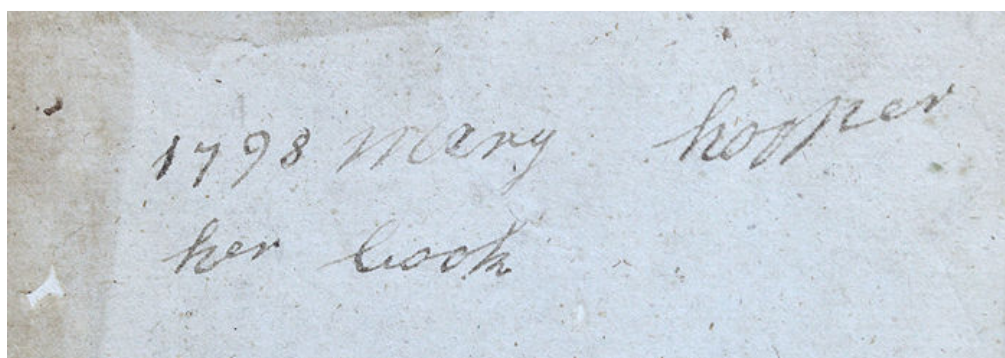 1798 Mary hopper
her book